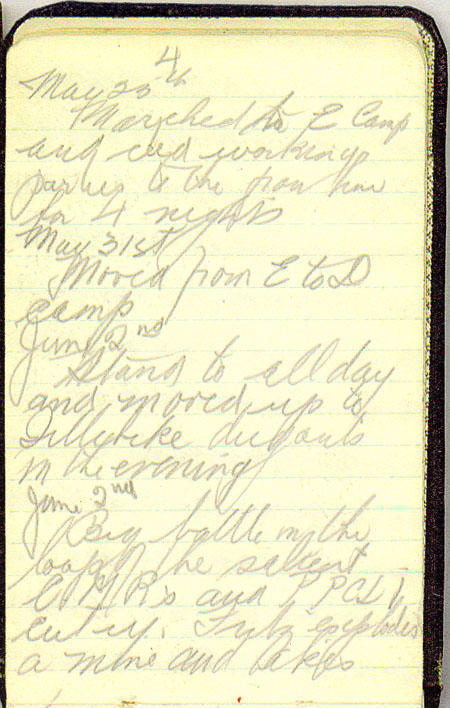 4
May 25th
Marched to E Camp
and did working
parties to the front line
for 4 nights
May 31st
Moved from E to D
camp
June 2nd
Stand to all day
and moved up to
Zillybike dugouts
in the evening
June 2nd
Big battle in the
loop of the salient
C.M.R's and PPCLI
cut up. Fritz explodes
a mine and takes